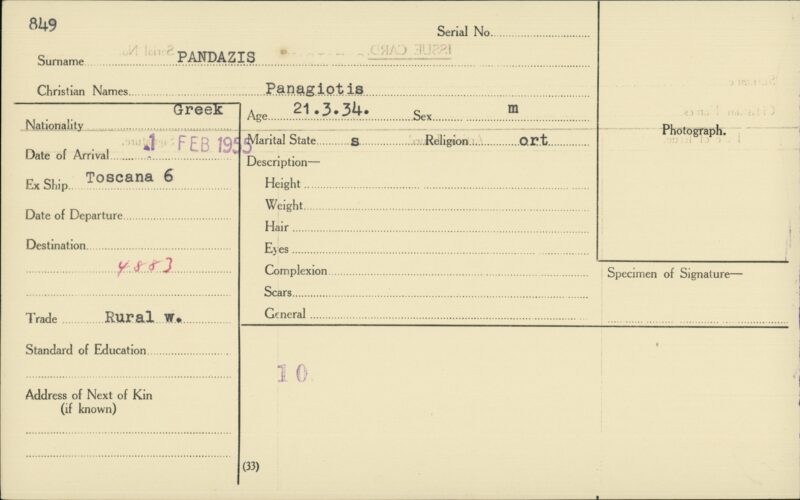 849
Serial No.
Surname PANDAZIS
ISSUE CARD
Serial No.
Christian Names Panagiotis
Nationality Greek
Age 21.3.34. Sex m
Date of Arrival 1 FEB 1955
Marital State s Religion ort
Photograph.
Ex Ship Toscana 6
Description—
Height
Weight
Date of Departure
Hair
Destination
Eyes
4883
Complexion
Specimen of Signature—
Scars
Trade Rural w.
General
Standard of Education
10
Address of Next of Kin
(if known)
(33)